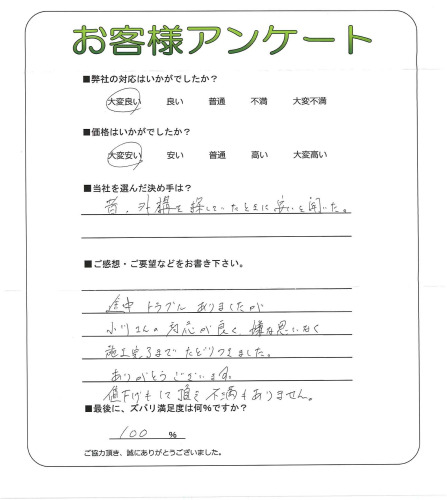 お客様アンケート
■弊社の対応はいかがでしたか？
大変良い 良い 普通 不満 大変不満
■価格はいかがでしたか？
大変安い 安い 普通 高い 大変高い
■当社を選んだ決め手は？
昔、外構を探していたときに安いと聞いた。
■ご感想・ご要望などをお書き下さい。
途中 トラブル ありましたが
小川さんの 対応が良く、嫌な思いなく
施工完了まで たどりつきました。
ありがとうございます。
値下げもして頂き 不満もありません。
■最後に、ズバリ満足度は何%ですか？
100 %
ご協力頂き、誠にありがとうございました。